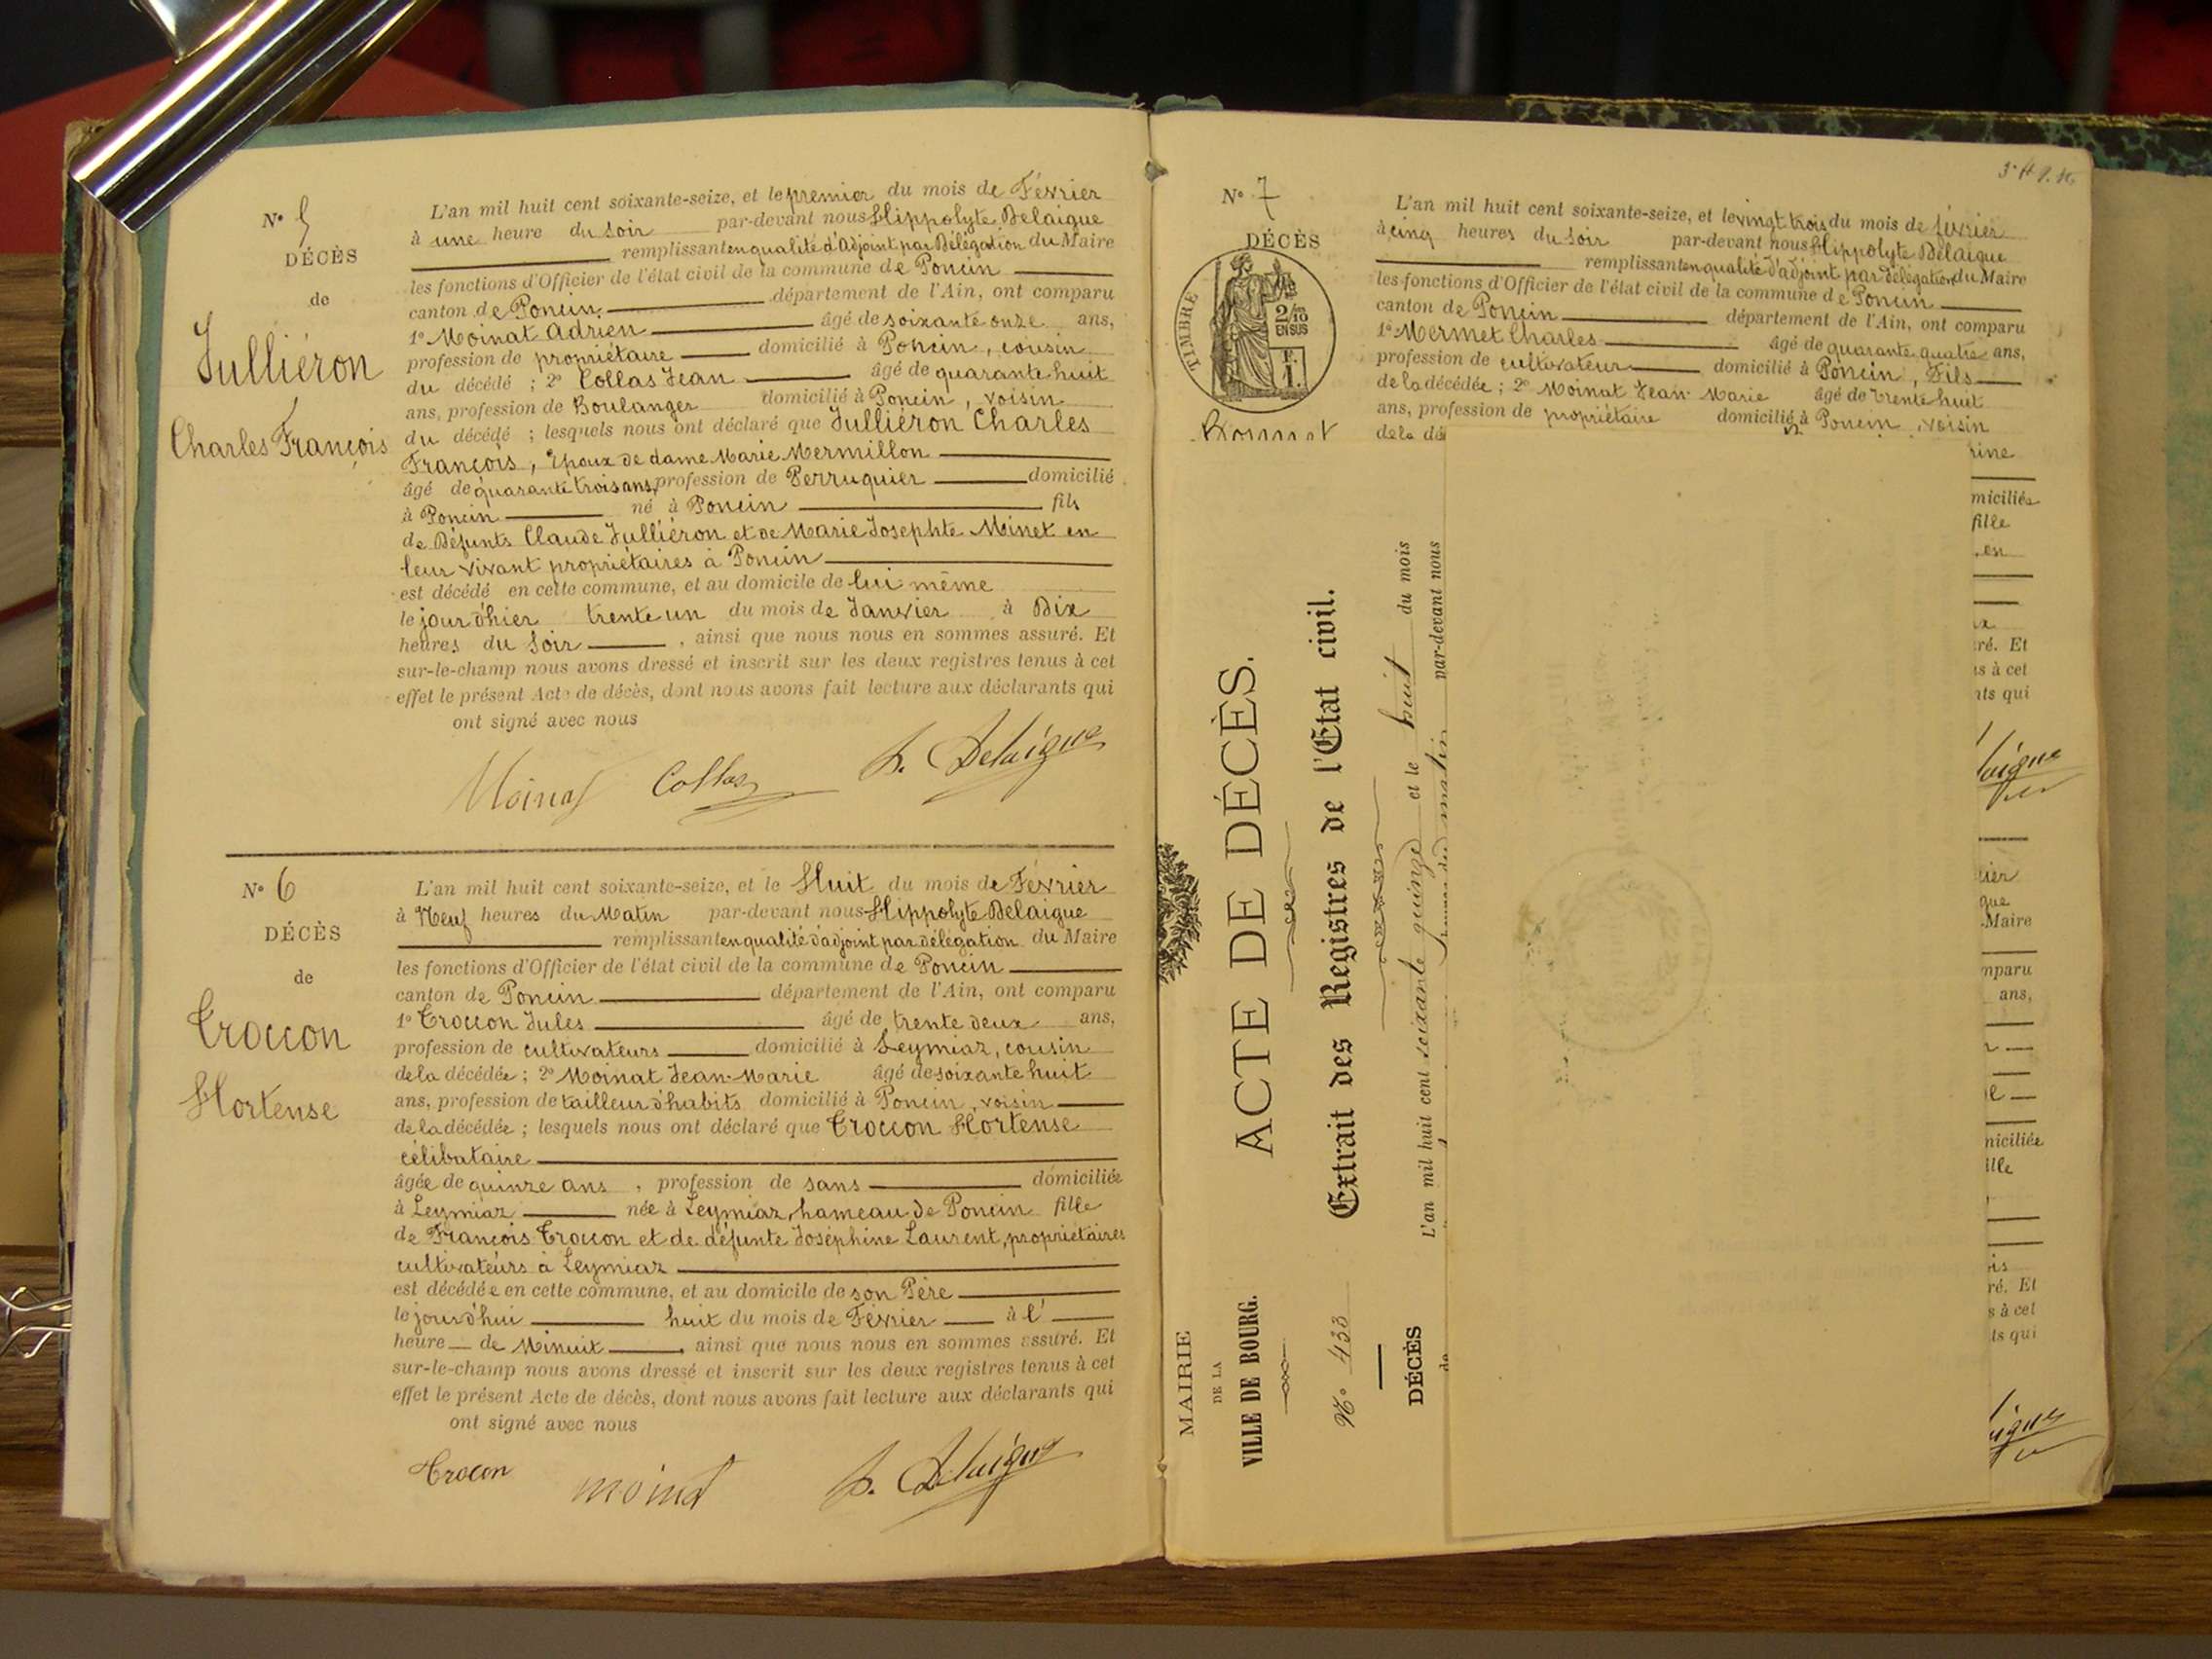 N° 5
DÉCÈS
de
Julliéron
Charles François
L'an mil huit cent soixante-seize, et le premier du mois de Février
à une heure du soir par-devant nous Hippolyte Delaigue
remplissant en qualité d'Adjoint par Délégation du Maire
les fonctions d'Officier de l'état civil de la commune de Poncin
canton de Poncin département de l'Ain, ont comparu
1° Moinat Adrien âgé de soixante onze ans,
profession de propriétaire domicilié à Poncin, cousin
du décédé ; 2° Collas Jean âgé de quarante huit
ans, profession de Boulanger domicilié à Poncin, voisin
du décédé ; lesquels nous ont déclaré que Julliéron Charles
François, Epoux de dame Marie Mermillon
âgé de quarante trois ans, profession de Perruquier domicilié
à Poncin né à Poncin fils
de Défunts Claude Julliéron et de Marie Josephte Minet en
leur vivant propriétaires à Poncin
est décédé en cette commune, et au domicile de lui même
le jour d'hier trente un du mois de Janvier à Dix
heures du soir , ainsi que nous nous en sommes assuré. Et
sur-le-champ nous avons dressé et inscrit sur les deux registres tenus à cet
effet le présent Acte de décès, dont nous avons fait lecture aux déclarants qui
ont signé avec nous
Moinat Collas h. Delaigue
N° 6
DÉCÈS
de
Troccon
Hortense
L'an mil huit cent soixante-seize, et le Huit du mois de Février
à Neuf heures du Matin par-devant nous Hippolyte Delaigue
remplissant en qualité d'adjoint par délégation du Maire
les fonctions d'Officier de l'état civil de la commune de Poncin
canton de Poncin département de l'Ain, ont comparu
1° Troccon Jules âgé de trente deux ans,
profession de cultivateurs domicilié à Leymiaz, cousin
de la décédée ; 2° Moinat Jean-Marie âgé de soixante huit
ans, profession de tailleur d'habits domicilié à Poncin, voisin
de la décédée ; lesquels nous ont déclaré que Troccon Hortense
célibataire
âgée de quinze ans , profession de sans domiciliée
à Leymiaz née à Leymiaz, hameau de Poncin fille
de François Troccon et de défunte Joséphine Laurent, propriétaires
cultivateurs à Leymiaz
est décédée en cette commune, et au domicile de son Père
le jourd'hui huit du mois de Février à l'
heure de Minuit , ainsi que nous nous en sommes assuré. Et
sur-le-champ nous avons dressé et inscrit sur les deux registres tenus à cet
effet le présent Acte de décès, dont nous avons fait lecture aux déclarants qui
ont signé avec nous
Trocon moinat h. Delaigue
N° 7
DÉCÈS
TIMBRE
2/10
EN SUS
F.
1.
L'an mil huit cent soixante-seize, et le vingt trois du mois de février
à cinq heures du soir par-devant nous Hippolyte Delaigue
remplissant en qualité d'adjoint par délégation du Maire
les fonctions d'Officier de l'état civil de la commune de Poncin
canton de Poncin département de l'Ain, ont comparu
1° Mermet Charles âgé de quarante quatre ans,
profession de cultivateur domicilié à Poncin, Fils
de la décédée ; 2° Moinat Jean-Marie âgé de trente huit
ans, profession de propriétaire domicilié à Poncin, voisin
de la dé
rine
miciliée
fille
en
ré. Et
s à cet
nts qui
laigue
Maire
mparu
ans,
miciliée
ille
ré. Et
s à cet
ts qui
MAIRIE
DE LA
VILLE DE BOURG.
N° 433
DÉCÈS
de
ACTE DE DÉCÈS.
Extrait des Registres de l'État civil.
L'an mil huit cent soixante quinze et le huit du mois
heures du matin par-devant nous